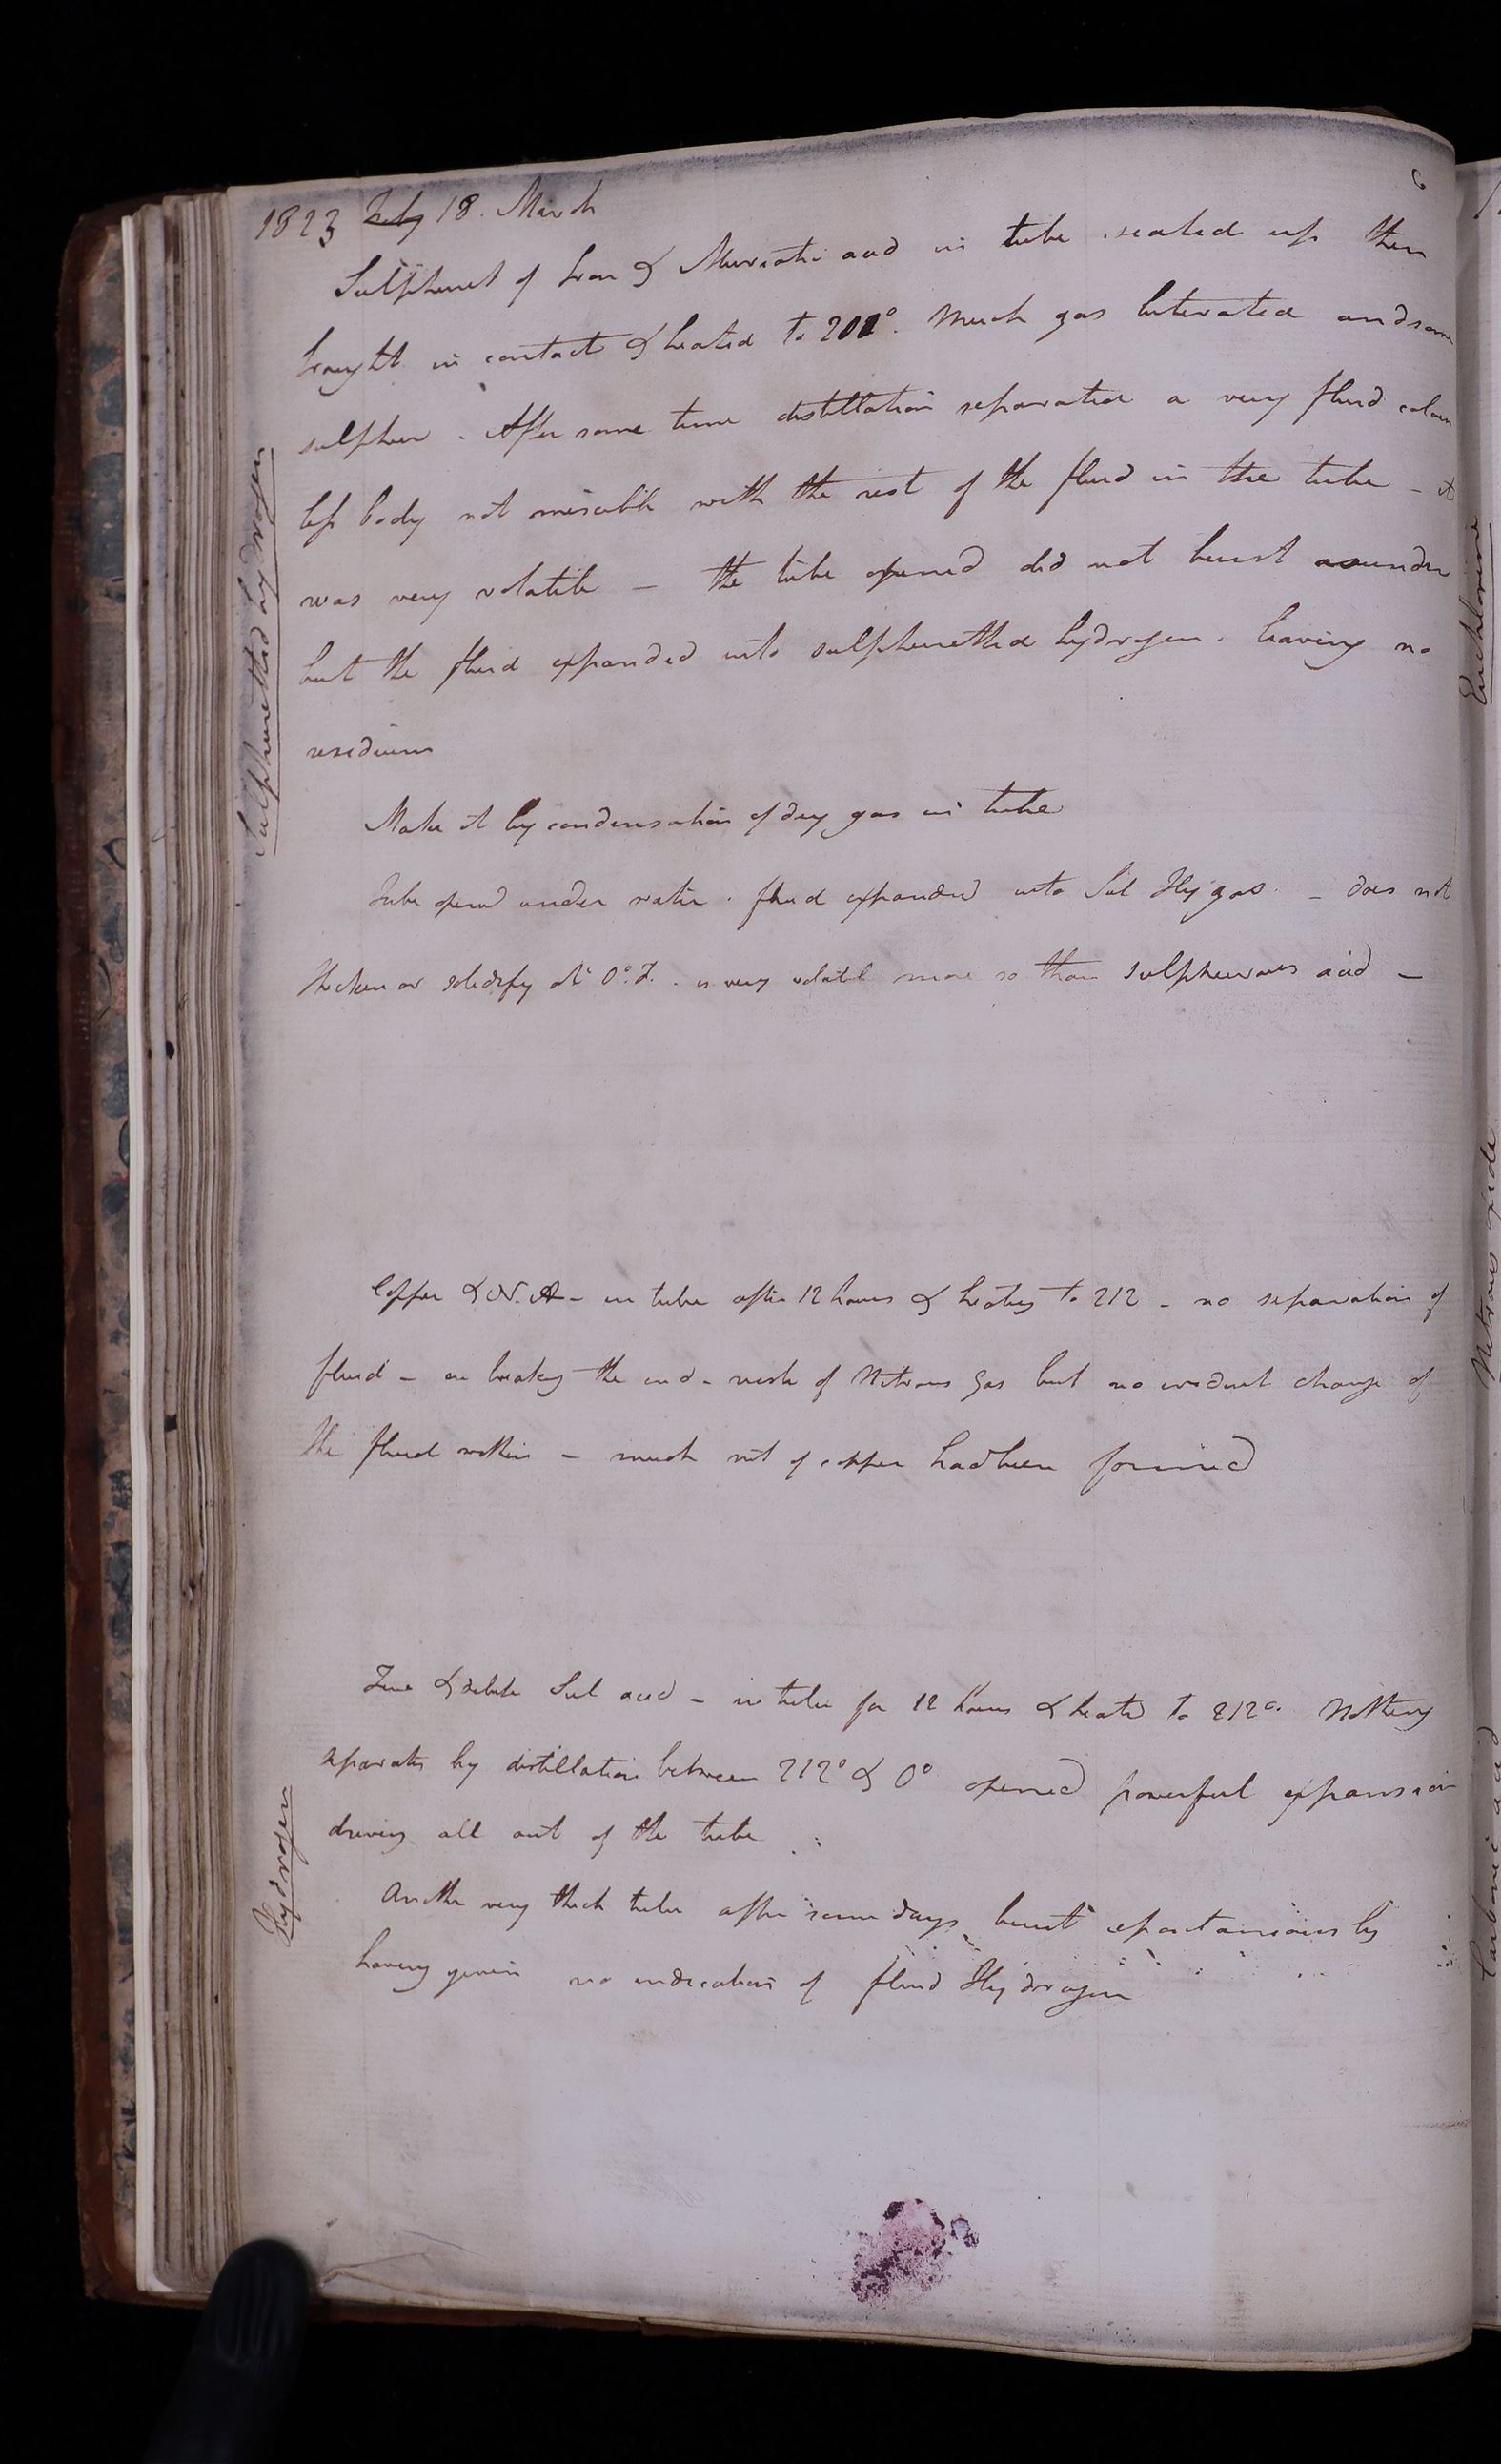 6
1823 Feby 18. March
Sulphuret of Iron & Muriatic acid in tube sealed up then
brought in contact & heated to 202°. Much gas liberated and some
sulphur. After some time distillation separated a very fluid colour
less body not miscible with the rest of the fluid in the tube - it
was very volatile - the tube opened did not burst asunder
but the fluid expanded into sulphuretted hydrogen. leaving no
residuum
Make it by condensation of dry gas in tube
Tube opend under water. fluid expanded into Sul Hy gas. - does not
thicken or solidify at 0°. F. . is very volatile more so than sulphurous acid -
Copper & N. A - in tube after 12 hours & heating to 212 - no separation of
fluid - on breaking the end - rush of Nitrous gas but no evident change of
the fluid within - much nit of copper had been formed
Zinc & dilute Sul acid - in tube for 12 hours & heated to 212°. Nothing
separates by distillation between 212° & 0° opened powerful expansion
driving all out of the tube.
Another very thick tube after some days burst spontaneously
having given no indication of fluid Hydrogen
Sulphuretted hydrogen
Hydrogen
Euchlorine
Nitrous oxide
Carbonic acid